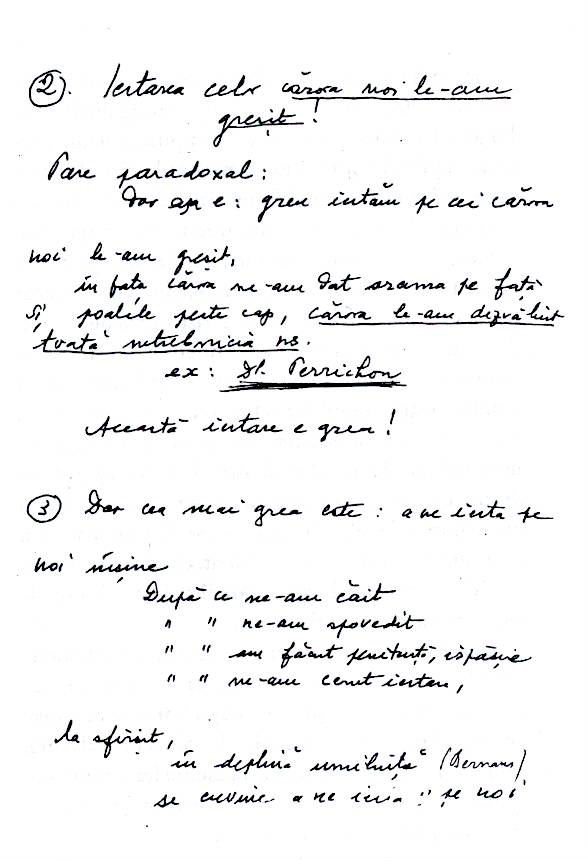 ②. Iertarea celor cărora noi le-am
greșit!
Pare paradoxal:
Dar așa e: greu iertăm pe cei cărora
noi le-am greșit,
în fața cărora ne-am dat arama pe față
și poalele peste cap, cărora le-am dezvăluit
toată netrebnicia ns.
ex: Dl. Perrichon
Această iertare e grea!
③ Dar cea mai grea este: a ne ierta pe
noi înșine
După ce ne-am căit
" " ne-am spovedit
" " am făcut penitență, ispășire
" " ne-am cerut iertare,
la sfîrșit,
în deplină umilință (Bernanos)
se cuvine a ne ierta și pe noi